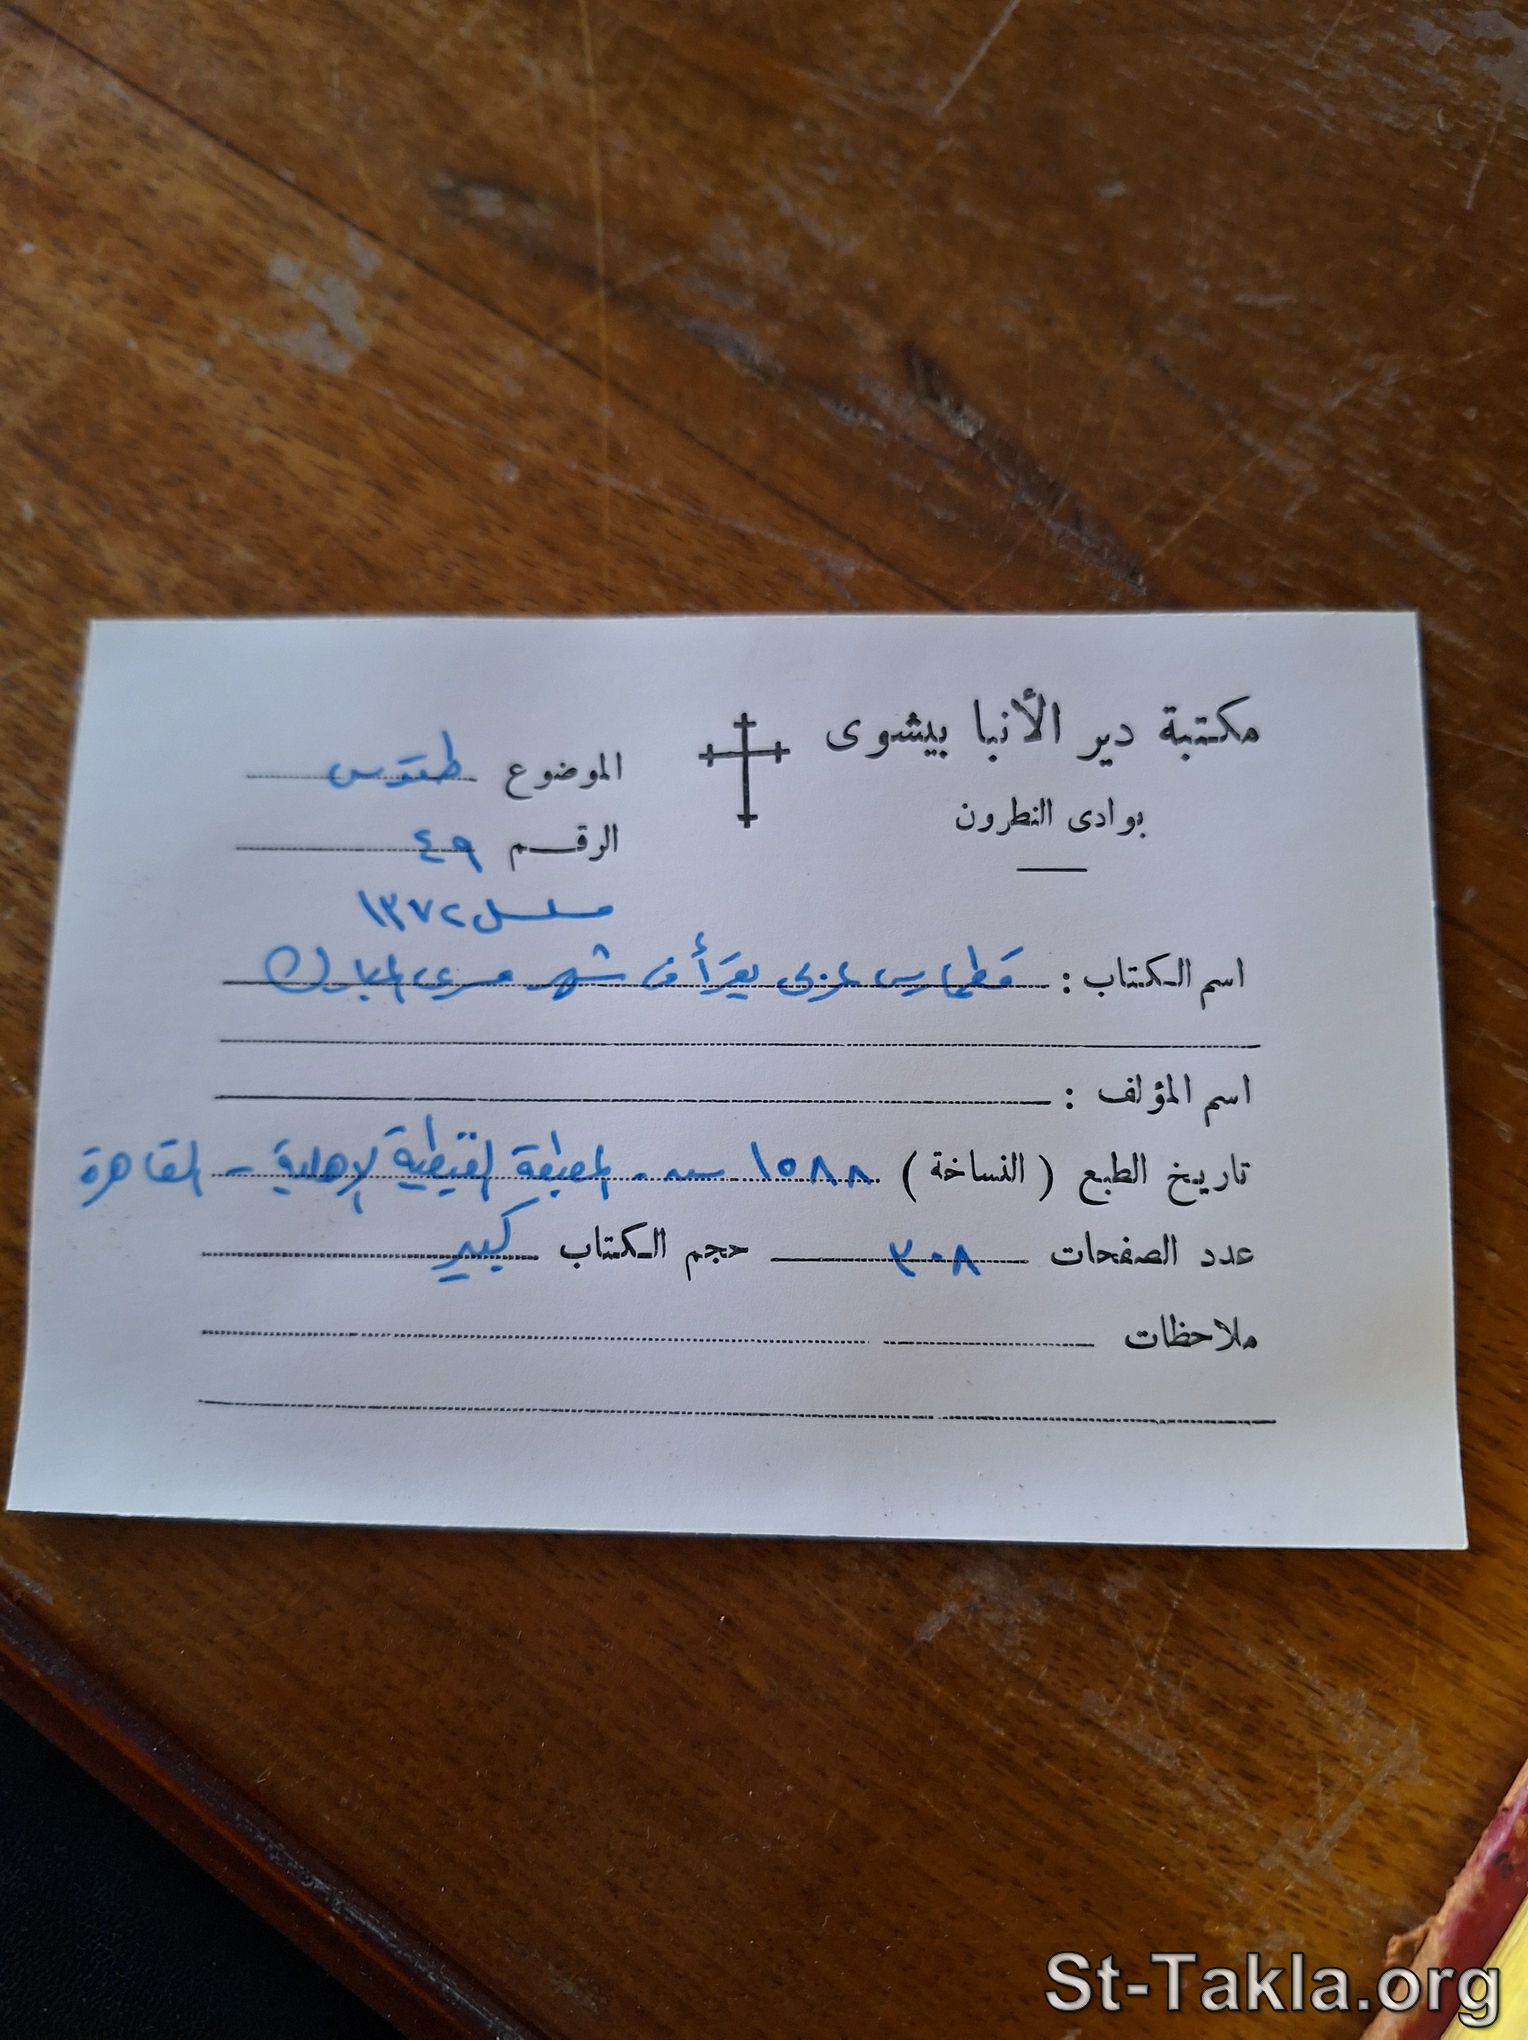 مكتبة دير الأنبا بيشوى
بوادى النطرون
الموضوع طقوس
الرقم ٤٩
مسلسل ١٣٧٢
اسم الكتاب : قطمارس عربى يقرأ فى شهر مسرى المبارك
اسم المؤلف :
تاريخ الطبع ( النساخة ) ١٥٨٨ سـ - المطبعة القبطية الاهلية - القاهرة
عدد الصفحات ٣٠٨ حجم الكتاب كبير
ملاحظات
St-Takla.org